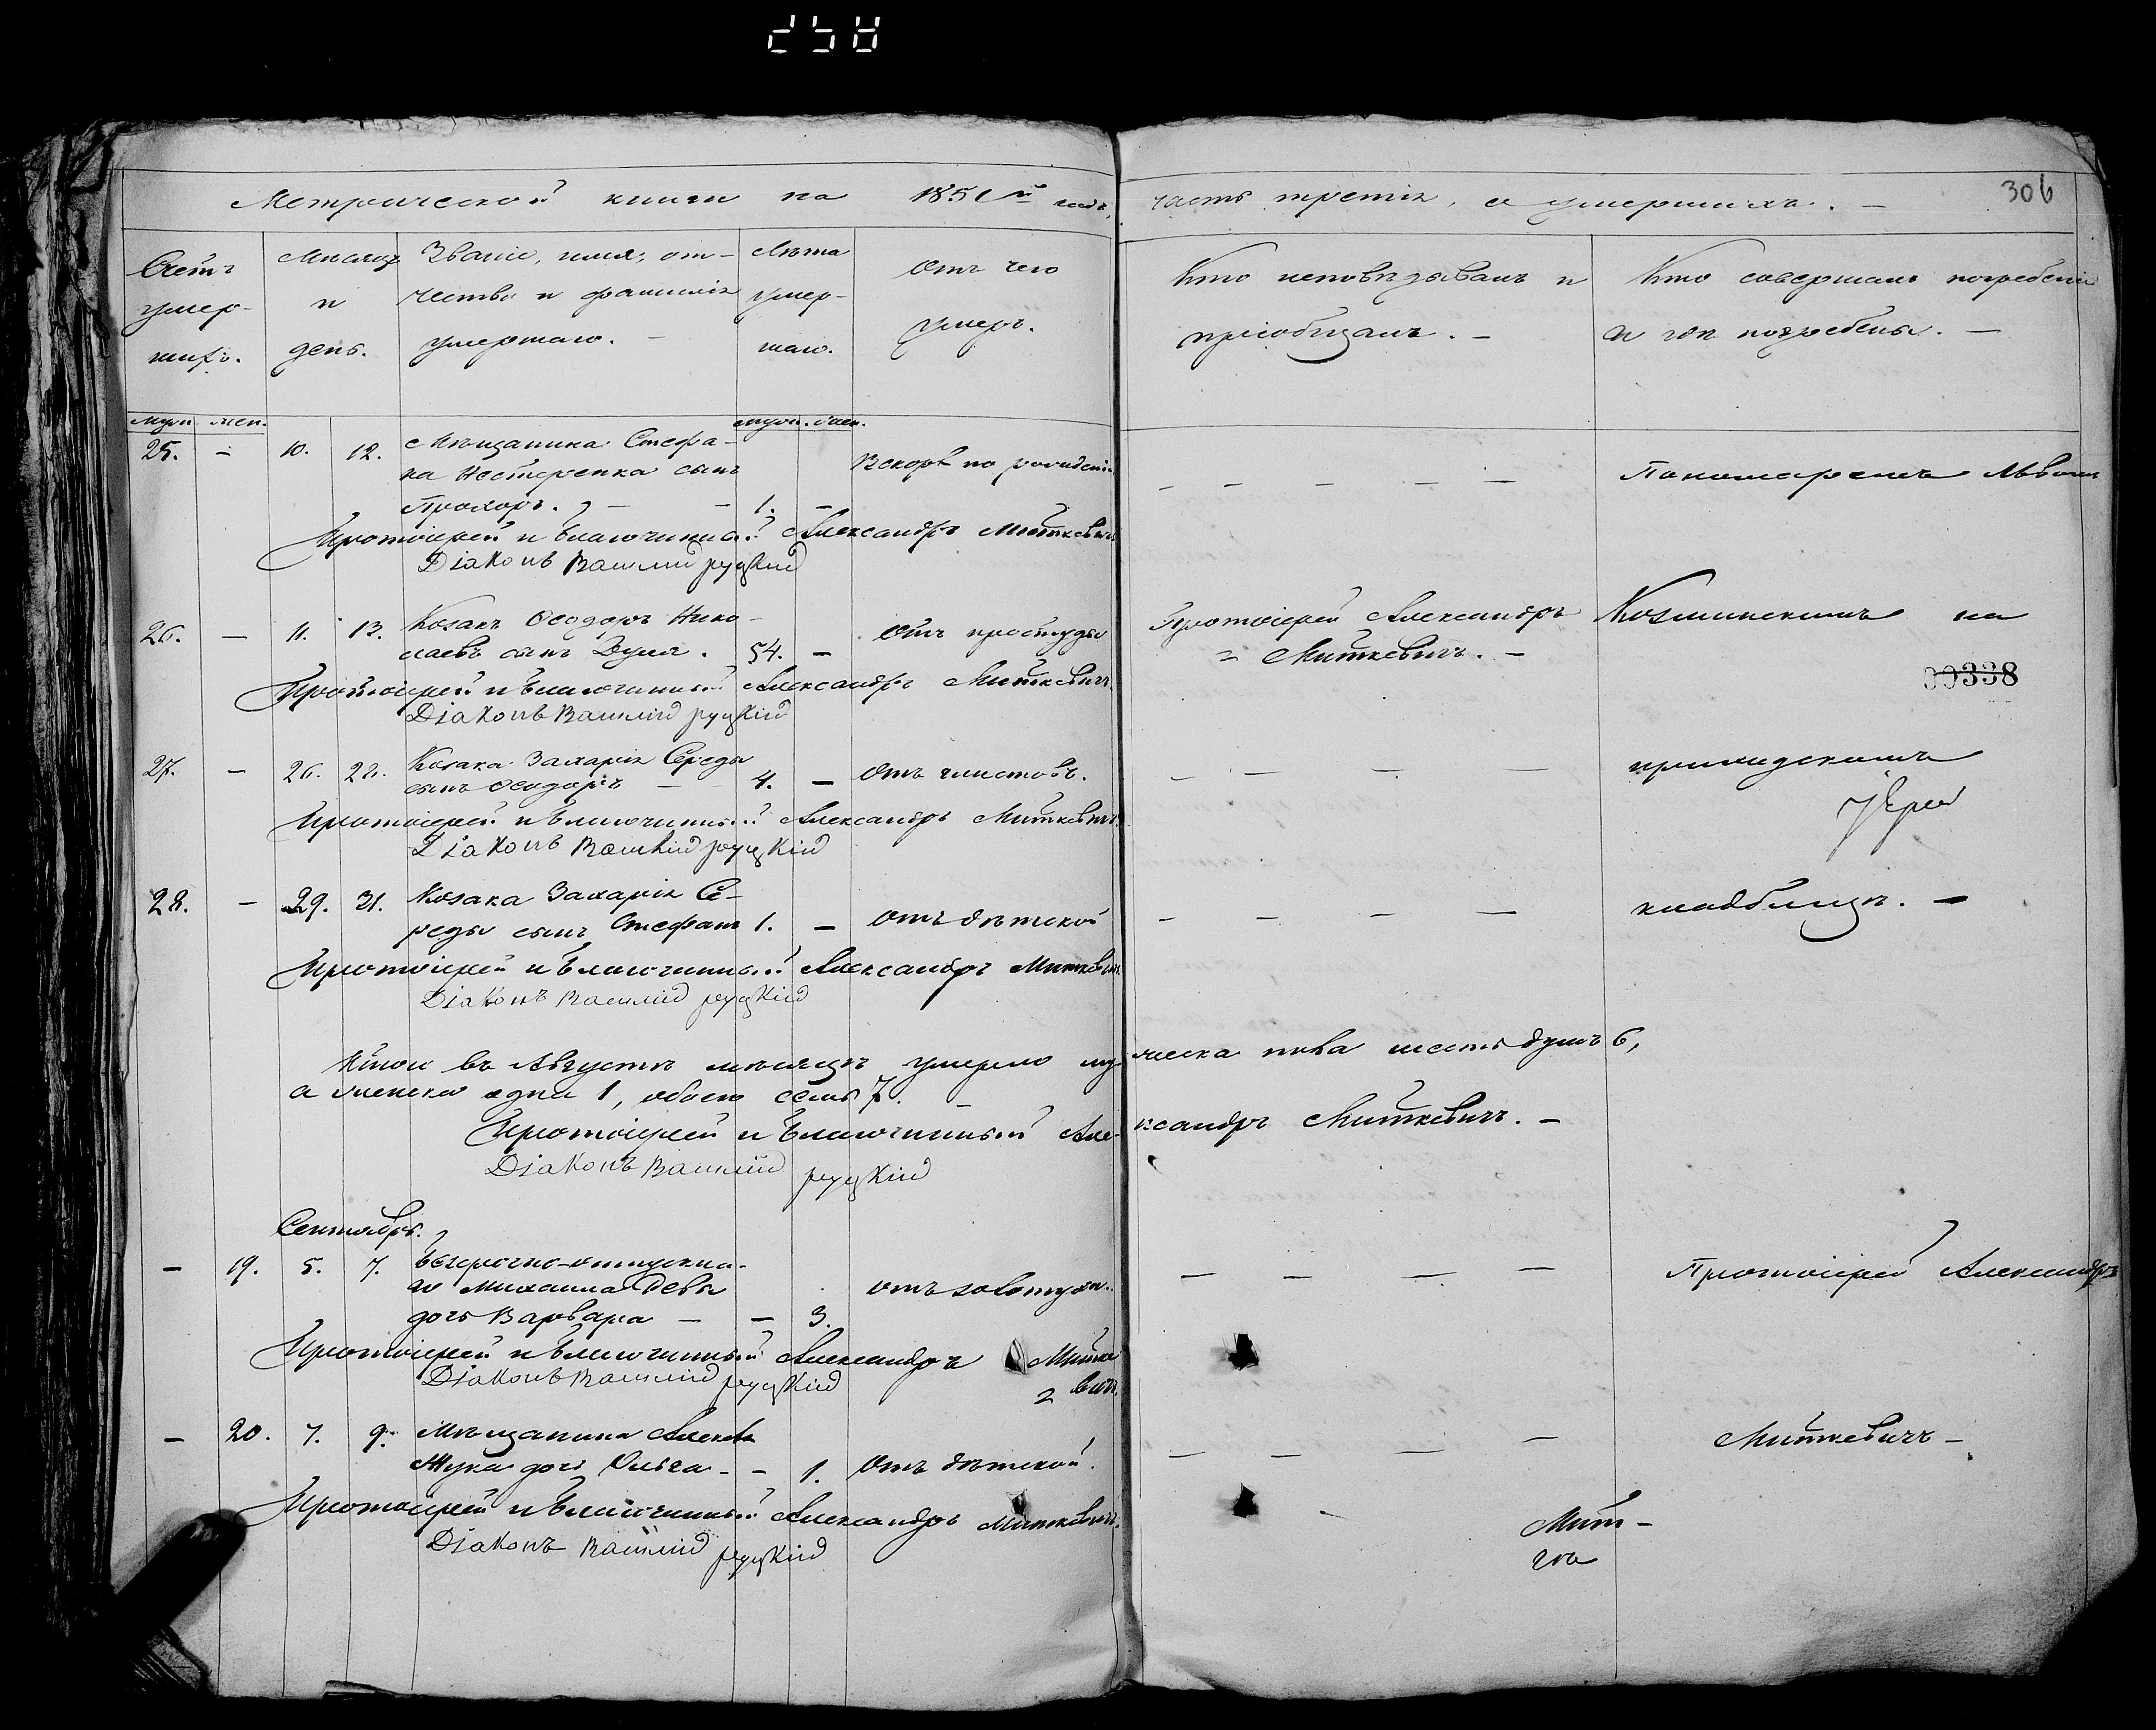 254
Метрической книги на 1851й годъ, часть третія, о умершихъ. —
306
Счетъ умер-шихъ.
Мѣсяцъ и день.
Званіе, имя, от-
чество и фамилія
умершаго. —
Лѣта умер-шаго.
Отъ чего
умеръ.
Кто исповѣдывалъ и
пріобщалъ. —
Кто совершалъ погребеніе
и гдѣ погребены. —
муж. жен.
муж. жен.
25. — 10. 12. Мѣщанина Стефа-
на Нестеренка сынъ
Прохоръ. — — 1. — Вскорѣ по рожденіи
— — — — —
Пономаремъ Львомъ
Протоіерей и Благочинный Александръ Миткевичъ
Діаконъ Василій Руцкій
26. — 11. 13. Козакъ Ѳеодоръ Нико-
лаевъ сынъ Дума. 54. — Отъ простуды
Протоіерей Александръ
Миткевичъ. —
Козминскимъ на
00338
Протоіерей и Благочинный Александръ Миткевичъ.
Діаконъ Василій Руцкій
27. — 26. 28. Козака Захарія Середы
сынъ Ѳеодоръ — — 4. — Отъ глистовъ.
— — — —
приходскомъ
Іерей
Протоіерей и Благочинный Александръ Миткевичъ.
Діаконъ Василій Руцкій
28. — 29. 31. Козака Захарія Се-
реды сынъ Стефанъ 1. — Отъ дѣтской
— — — —
кладбищѣ. —
Протоіерей и Благочинный Александръ Миткевичъ
Діаконъ Василій Руцкій
Итого въ Августѣ мѣсяцѣ умерло му-жеска пола шесть душъ 6,
а женска одна 1, обоего семь 7. —
Протоіерей и Благочинный Але-ксандръ Миткевичъ. —
Діаконъ Василій Руцкій
Сентябрь.
— 19. 5. 7. Безсрочно-отпускна-
го Михаила Девы
дочь Варвара — — 3. отъ золотухи.
— — — —
Протоіерей Александръ
Протоіерей и Благочинный Александръ Митке
вичъ.
Діаконъ Василій Руцкій
— 20. 7. 9. Мѣщанина
Жука дочь Ольга — — 1. Отъ дѣтской.
— — — —
Миткевичъ —
Протоіерей и Благочинный Александръ Миткевичъ.
Діаконъ Василій Руцкій